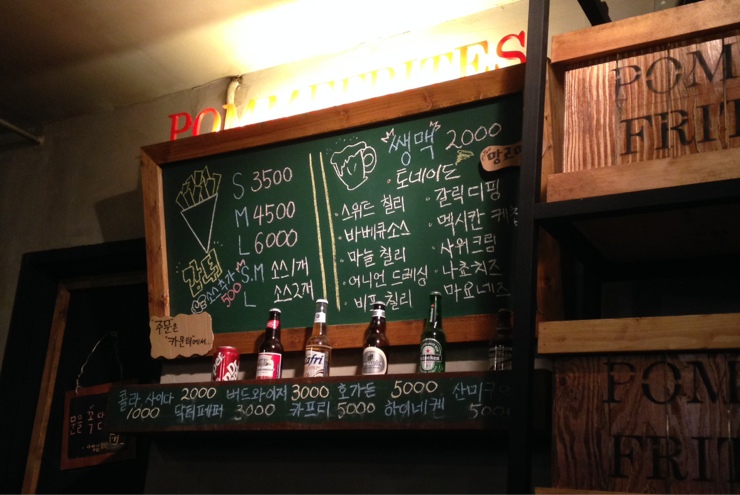 POMMEFRITES
POM
FRIT
S 3500
M 4500
L 6000
감튀
소스추가
500
S.M 소스1개
L 소스2개
"쌩맥" 2000
토네이도
스위트 칠리
바베큐소스
마늘 칠리
어니언 드레싱
비프 칠리
갈릭디핑
멕시칸
사워크림
나쵸치즈
마요네즈
주문은
카운터에서..
콜라 사이다 2000 버드와이저 3000 호가든 5000 산미구
1000 닥터페퍼 3000 카프리 5000 하이네켄 500
POM
FRIT